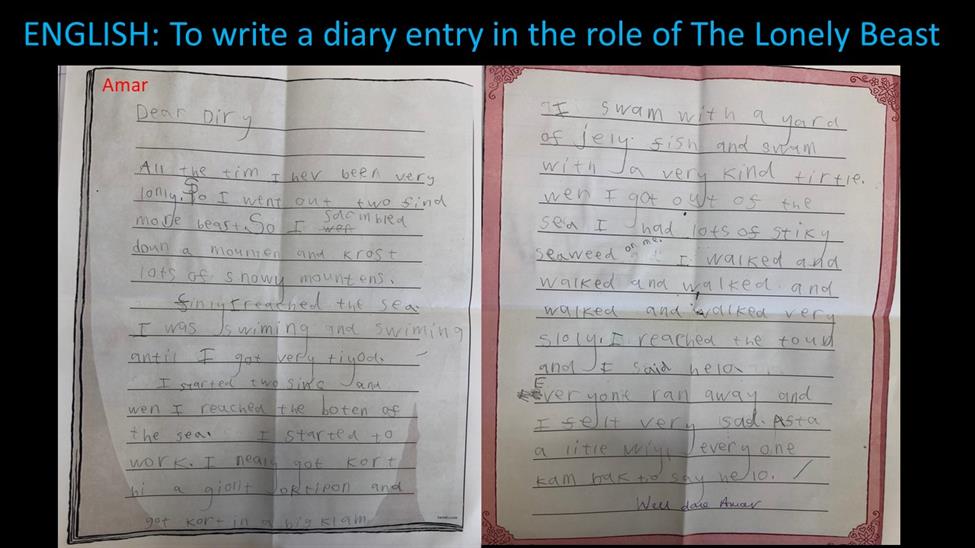 ENGLISH: To write a diary entry in the role of The Lonely Beast
Amar
Dear Diry
All the tim I hev been very
lonly. So I went out two find
more beast So I sacmbled
doun a mounten and krost
lots of snowy mountens.
finly I reached the sea.
I was swiming and swiming
antil I got very tiyod.
I started two sinc and
wen I reached the boten of
the sea. I started to
work. I nealy got kort
bi a giollt and
got kort in a big klam
I swam with a yard
of jely fish and swam
with a very kind tirtle.
wen I got out of the
sea I had lots of stiky
seaweed on me. I walked and
walked and walked and
walked and walked very
sloly. I reached the toun
and I said helo.
Everyone ran away and
I felt very sad. Asta
a litle wiyl every one
kam bak to say helo.
Well done Amar